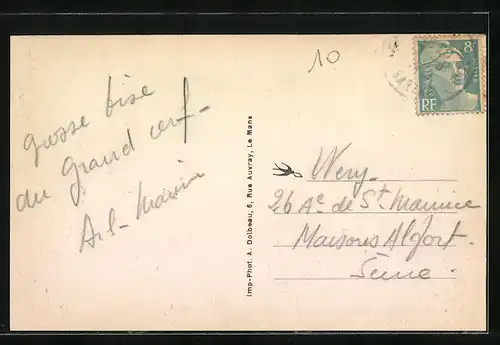 10
8F
RF
SAR
grosse bise
du grand cerf-
Imp-Phot. A. Dolbeau, 6, Rue Auvray, Le Mans
Wery
26 Ae de St Maurice
Maisons Alfort.
Seine.